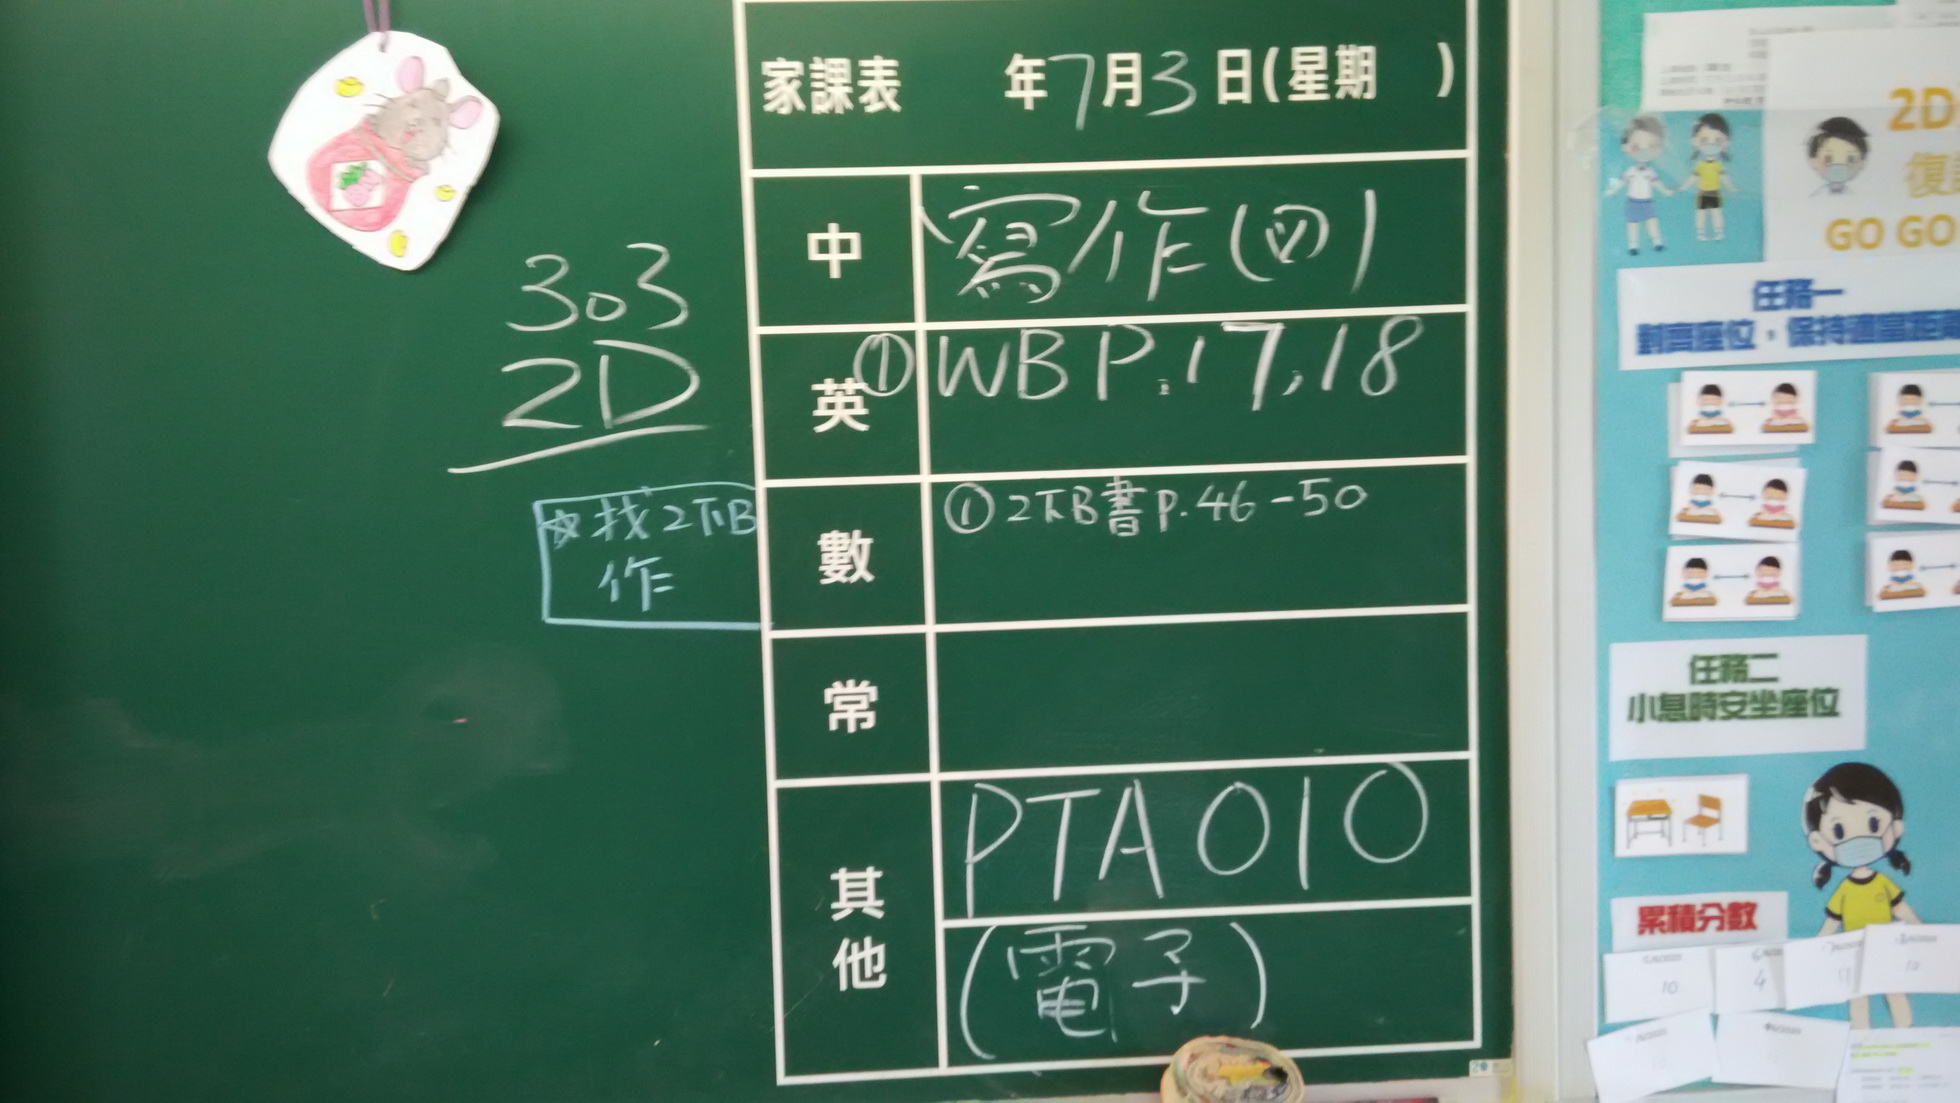 家課表 年7月3日(星期 )
中 寫作(四)
英 ① WB P.17,18
數 ① 2下B書 P.46-50
常
其他 PTA 010
(電子)
303
2D
☆找2下B
作
2D
GO GO
任務一
對齊座位，保持適當距離
任務二
小息時安坐座位
累積分數
10
4
11
10